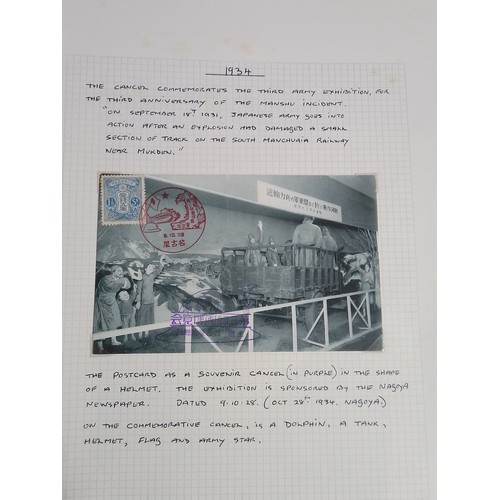 1934
THE CANCEL COMMEMORATES THE THIRD ARMY EXHIBITION, FOR
THE THIRD ANNIVERSARY OF THE MANSHU INCIDENT.
"ON SEPTEMBER 18T 1931, JAPANESE ARMY GOES INTO
ACTION AFTER AN EXPLOSION HAD DAMAGED A SMALL
SECTION OF TRACK ON THE SOUTH MANCHURIA RAILWAY
NEAR MUKDEN."
名古屋
THE POSTCARD AS A SOUVENIR CANCEL (IN PURPLE) IN THE SHAPE
OF A HELMET. THE EXHIBITION IS SPONSORED BY THE NAGOYA
NEWSPAPER. DATED 9.10.28. (OCT 28TH 1934. NAGOYA.)
ON THE COMMEMORATIVE CANCEL, IS A DOLPHIN, A TANK,
HELMET, FLAG AND ARMY STAR.